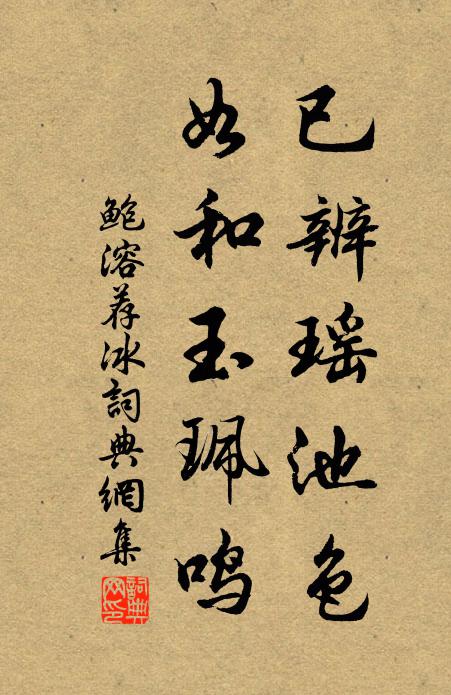 已辨瑶池色
如和玉珮鸣
鲍溶荐冰詞典網集
詞典網印